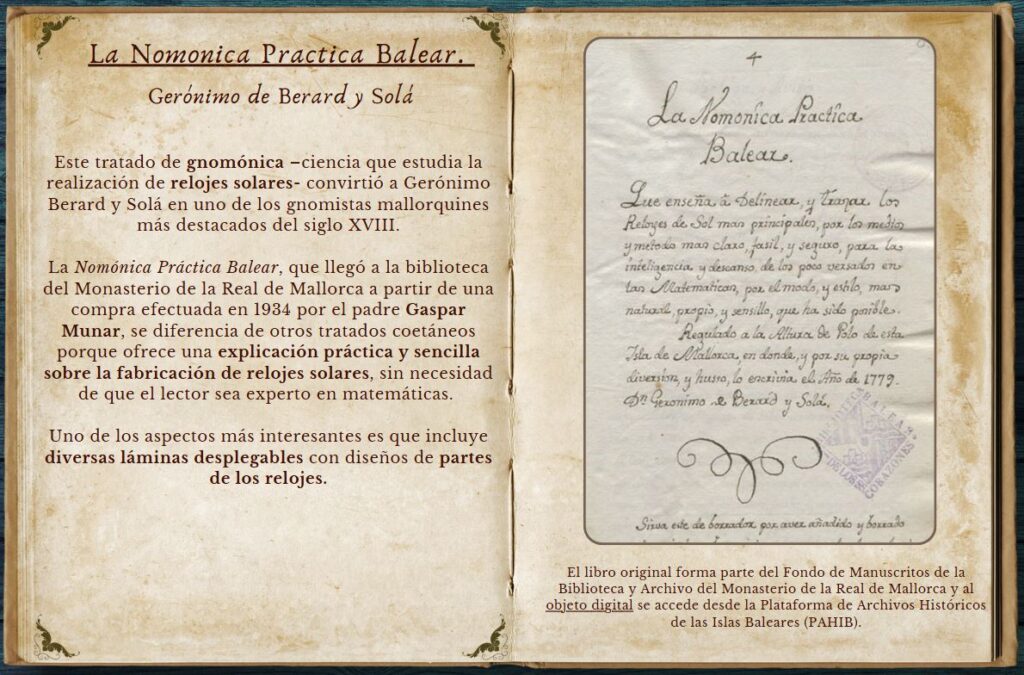 La Nomonica Practica Balear.
Gerónimo de Berard y Solá
Este tratado de gnomónica –ciencia que estudia la
realización de relojes solares- convirtió a Gerónimo
Berard y Solá en uno de los gnomistas mallorquines
más destacados del siglo XVIII.
La Nomónica Práctica Balear, que llegó a la biblioteca
del Monasterio de la Real de Mallorca a partir de una
compra efectuada en 1934 por el padre Gaspar
Munar, se diferencia de otros tratados coetáneos
porque ofrece una explicación práctica y sencilla
sobre la fabricación de relojes solares, sin necesidad
de que el lector sea experto en matemáticas.
Uno de los aspectos más interesantes es que incluye
diversas láminas desplegables con diseños de partes
de los relojes.
4
La Nomonica Practica
Balear.
Que enseña â Delinear, y trazar los
Reloyes de Sol mas principales, por los medios
y metodo mas claro, fasil, y seguro, para la
inteligencia y descanso, de los poco versados en
las Matematicas, por el modo, y estilo, mas
natural, propio, y sensillo, que ha sido posible.
Regulado a la Altura de Polo de esta
Isla de Mallorca, en donde, y por su propia
diversion, y husso, lo escrivia el Año de 1779.
Dn Geronimo de Berard y Solá.
BALEAR
DE LOS SS. CORAZONES
Sirva este de borrador por aver añadido y borrado
El libro original forma parte del Fondo de Manuscritos de la
Biblioteca y Archivo del Monasterio de la Real de Mallorca y al
objeto digital se accede desde la Plataforma de Archivos Históricos
de las Islas Baleares (PAHIB).